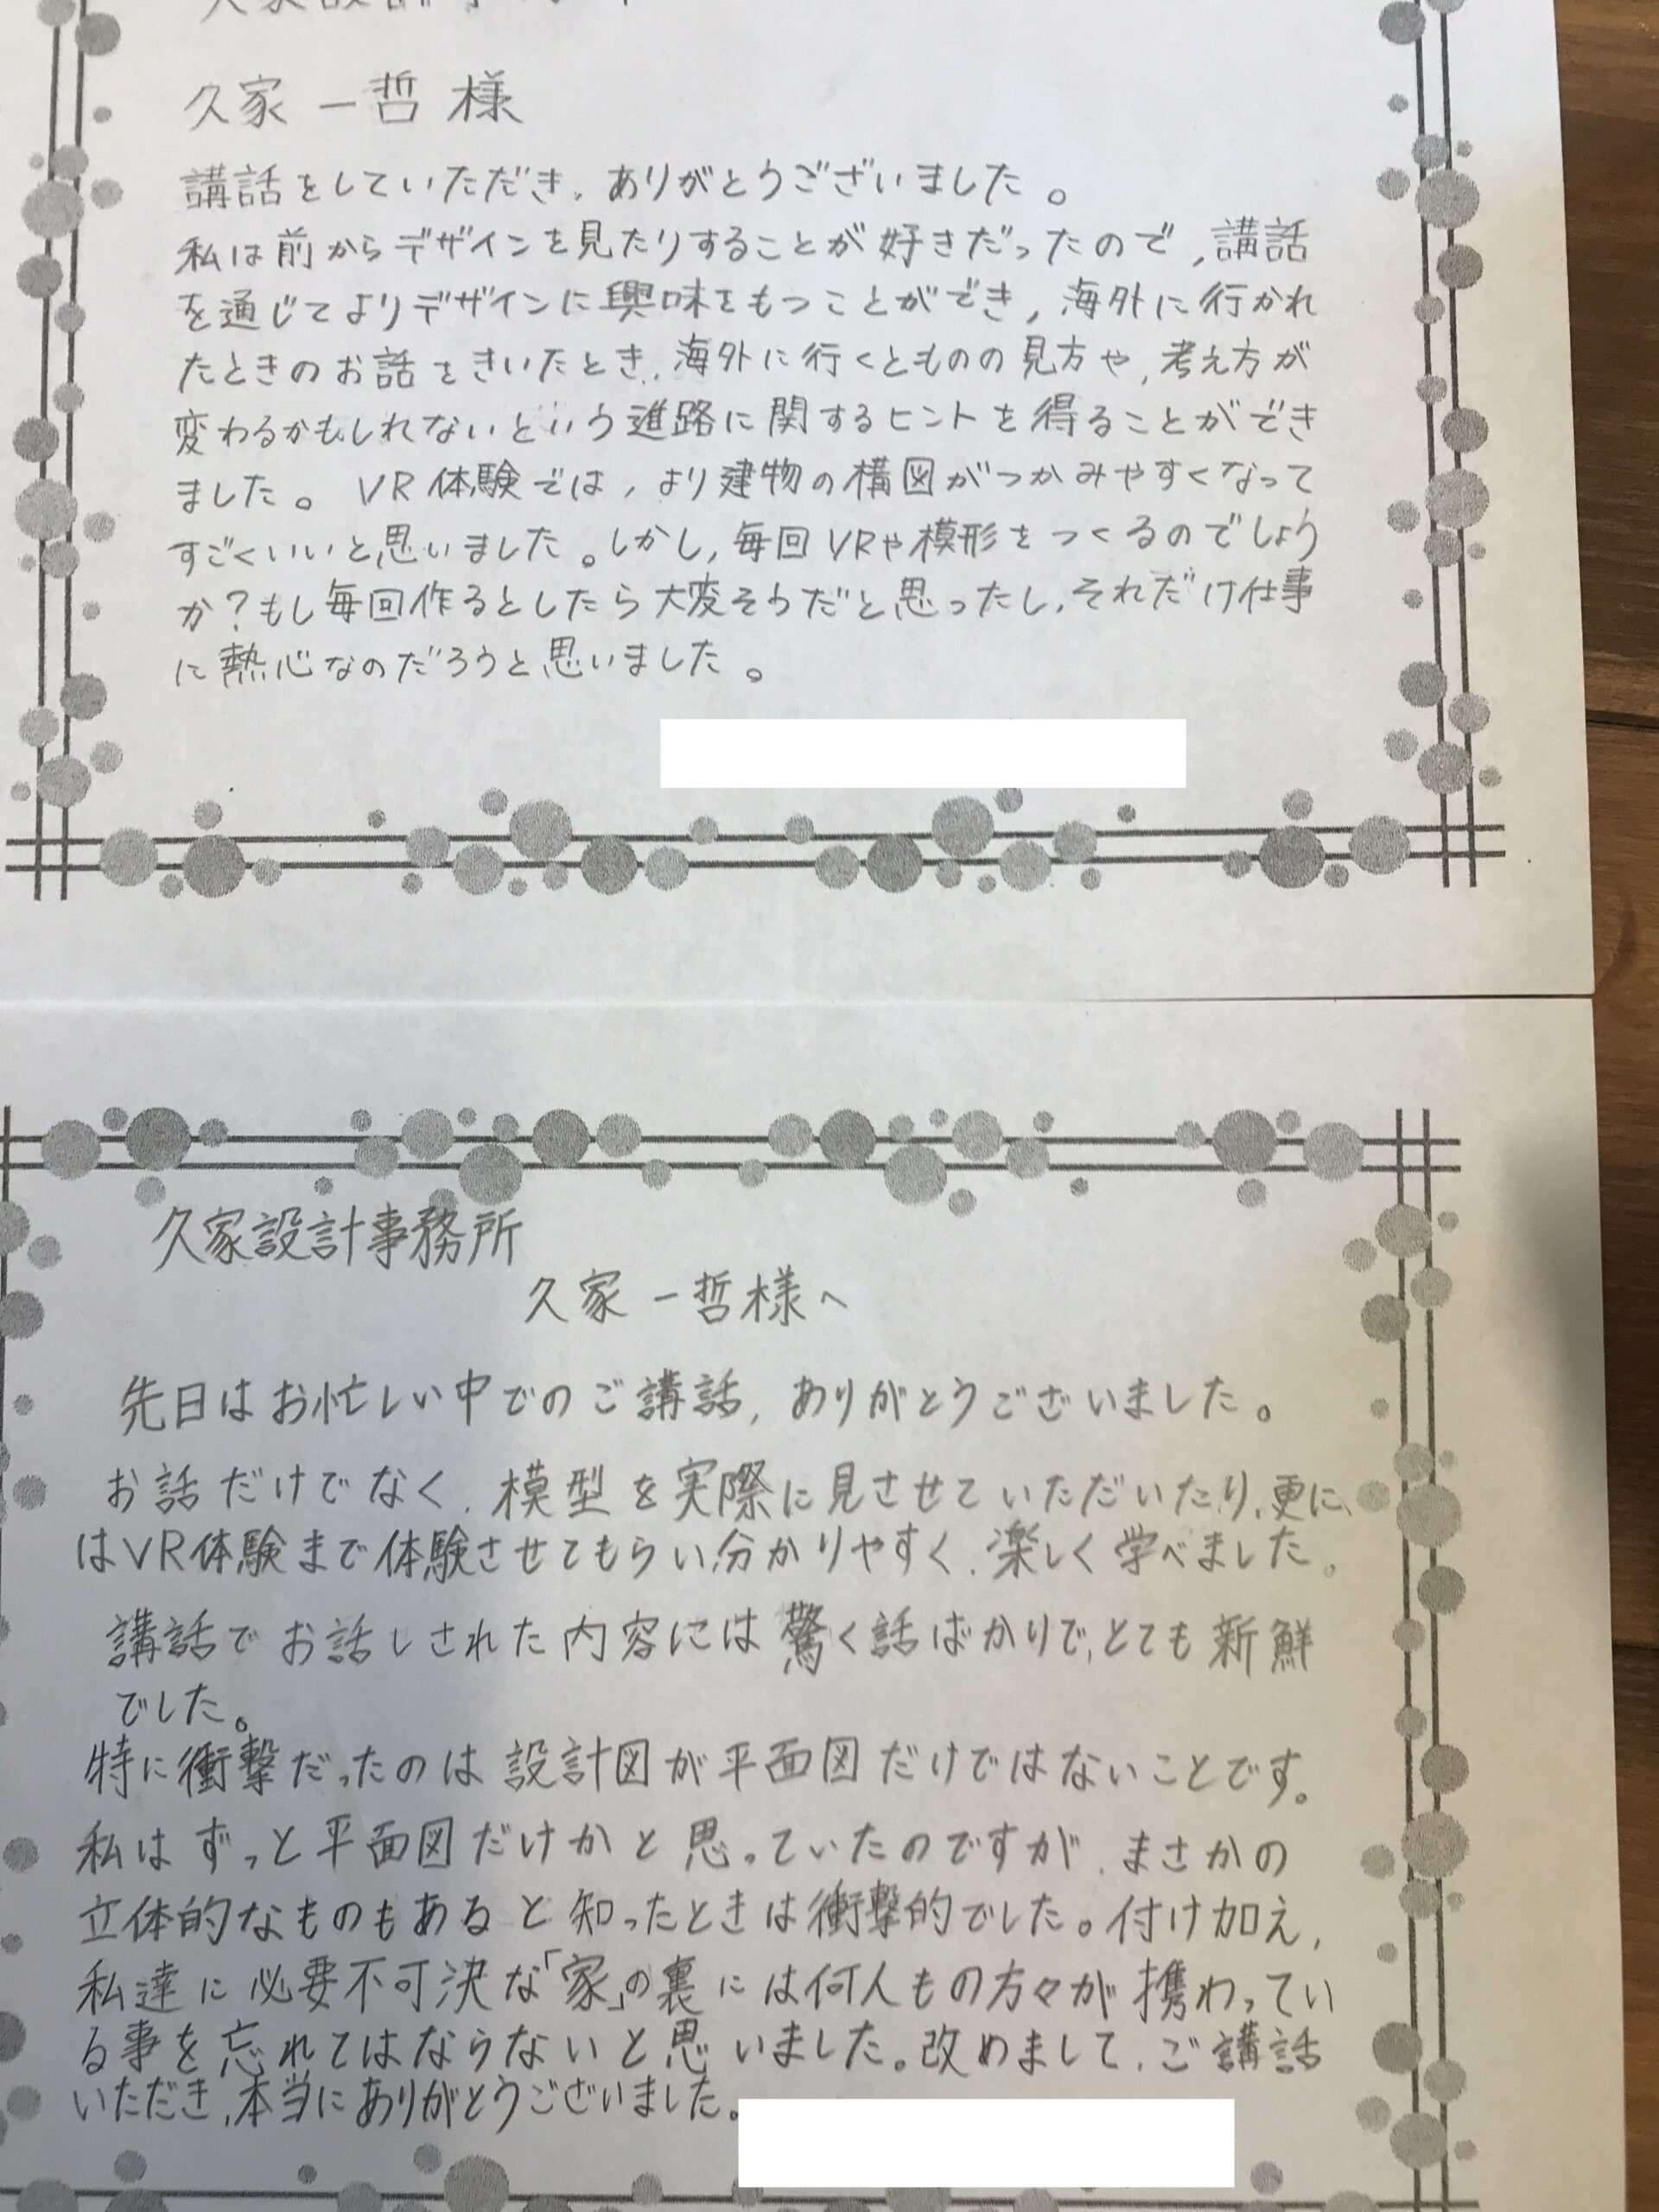 久家 一哲 様
講話をしていただき、ありがとうございました。
私は前からデザインを見たりすることが好きだったので、講話
を通じてよりデザインに興味をもつことができ、海外に行かれ
たときのお話をきいたとき、海外に行くとものの見方や、考え方が
変わるかもしれないという進路に関するヒントを得ることができ
ました。VR体験では、より建物の構図がつかみやすくなって
すごくいいと思いました。しかし、毎回VRや模形をつくるのでしょう
か?もし毎回作るとしたら大変そうだと思ったし、それだけ仕事
に熱心なのだろうと思いました。
久家設計事務所
久家 一哲様へ
先日はお忙しい中でのご講話、ありがとうございました。
お話だけでなく、模型を実際に見させていただいたり、更に、
はVR体験まで体験させてもらい、分かりやすく、楽しく学べました。
講話でお話しされた内容には驚く話ばかりで、とても新鮮
でした。
特に衝撃だったのは設計図が平面図だけではないことです。
私はずっと平面図だけかと思っていたのですが、まさかの
立体的なものもあると知ったときは衝撃的でした。付け加え、
私達に必要不可決な「家」の裏には何人もの方々が携わってい
る事を忘れてはならないと思いました。改めまして、ご講話
いただき、本当にありがとうございました。